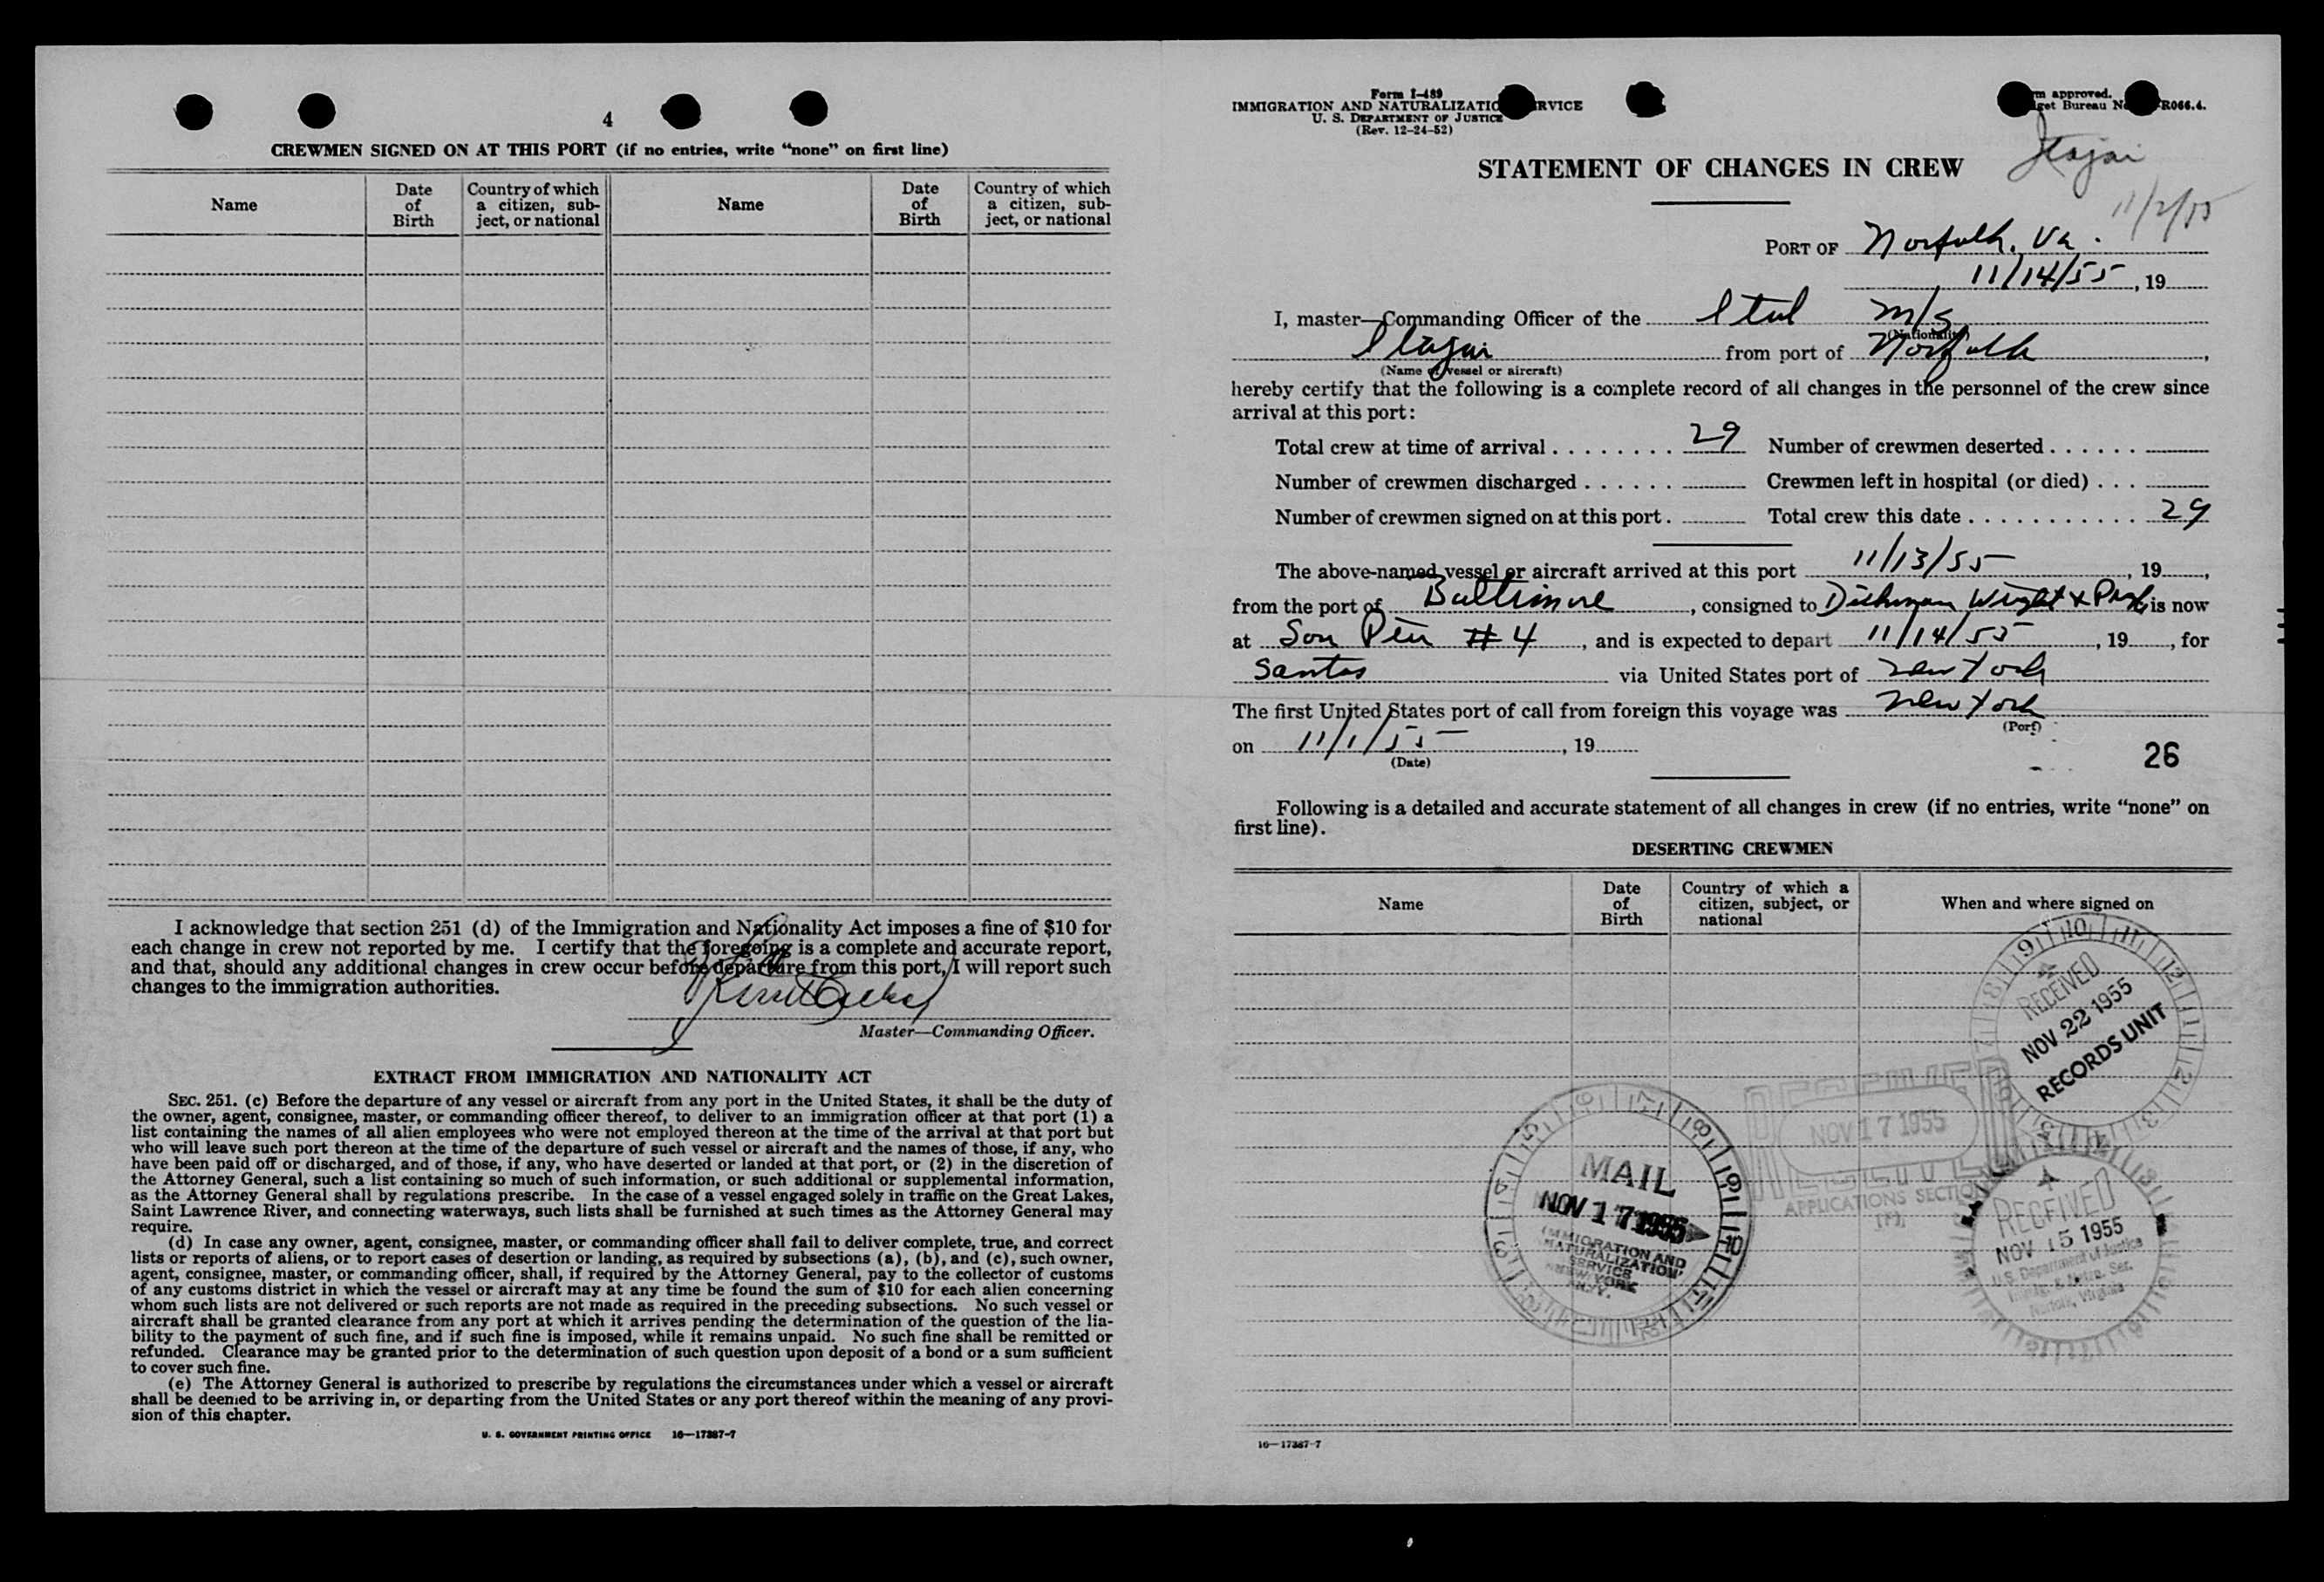 4
CREWMEN SIGNED ON AT THIS PORT (if no entries, write “none” on first line)
Name
Date of Birth
Country of which a citizen, sub-ject, or national
Name
Date of Birth
Country of which a citizen, sub-ject, or national
I acknowledge that section 251 (d) of the Immigration and Nationality Act imposes a fine of $10 for
each change in crew not reported by me. I certify that the foregoing is a complete and accurate report,
and that, should any additional changes in crew occur before departure from this port, I will report such
changes to the immigration authorities.
Master—Commanding Officer.
EXTRACT FROM IMMIGRATION AND NATIONALITY ACT
SEC. 251. (c) Before the departure of any vessel or aircraft from any port in the United States, it shall be the duty of
the owner, agent, consignee, master, or commanding officer thereof, to deliver to an immigration officer at that port (1) a
list containing the names of all alien employees who were not employed thereon at the time of the arrival at that port but
who will leave such port thereon at the time of the departure of such vessel or aircraft and the names of those, if any, who
have been paid off or discharged, and of those, if any, who have deserted or landed at that port, or (2) in the discretion of
the Attorney General, such a list containing so much of such information, or such additional or supplemental information,
as the Attorney General shall by regulations prescribe. In the case of a vessel engaged solely in traffic on the Great Lakes,
Saint Lawrence River, and connecting waterways, such lists shall be furnished at such times as the Attorney General may
require.
(d) In case any owner, agent, consignee, master, or commanding officer shall fail to deliver complete, true, and correct
lists or reports of aliens, or to report cases of desertion or landing, as required by subsections (a), (b), and (c), such owner,
agent, consignee, master, or commanding officer, shall, if required by the Attorney General, pay to the collector of customs
of any customs district in which the vessel or aircraft may at any time be found the sum of $10 for each alien concerning
whom such lists are not delivered or such reports are not made as required in the preceding subsections. No such vessel or
aircraft shall be granted clearance from any port at which it arrives pending the determination of the question of the lia-
bility to the payment of such fine, and if such fine is imposed, while it remains unpaid. No such fine shall be remitted or
refunded. Clearance may be granted prior to the determination of such question upon deposit of a bond or a sum sufficient
to cover such fine.
(e) The Attorney General is authorized to prescribe by regulations the circumstances under which a vessel or aircraft
shall be deemed to be arriving in, or departing from the United States or any port thereof within the meaning of any provi-
sion of this chapter.
U. S. GOVERNMENT PRINTING OFFICE 16—17387-7
Form I-489
IMMIGRATION AND NATURALIZATIO RVICE
U. S. DEPARTMENT OF JUSTICE
(Rev. 12-24-52)
m approved.
get Bureau N R066.4.
Itajai
11/2/55
STATEMENT OF CHANGES IN CREW
PORT OF Norfolk, Va.
11/14/55, 19
I, master—Commanding Officer of the Ital M/S
(Nationality)
Itajai from port of Norfolk,
(Name of vessel or aircraft)
hereby certify that the following is a complete record of all changes in the personnel of the crew since
arrival at this port:
Total crew at time of arrival . . . . . . . . 29 Number of crewmen deserted . . . . . .
Number of crewmen discharged . . . . . . Crewmen left in hospital (or died) . . .
Number of crewmen signed on at this port . Total crew this date . . . . . . . . . . . . 29
The above-named vessel or aircraft arrived at this port 11/13/55, 19,
from the port of Baltimore, consigned to Dichman Wright & Pugh, is now
at Sou Pier #4, and is expected to depart 11/14/55, 19, for
Santos via United States port of New York
The first United States port of call from foreign this voyage was New York
(Port)
on 11/1/55, 19
(Date)
26
Following is a detailed and accurate statement of all changes in crew (if no entries, write “none” on
first line).
DESERTING CREWMEN
Name
Date of Birth
Country of which a citizen, subject, or national
When and where signed on
RECEIVED
NOV 22 1955
RECORDS UNIT
RECEIVED
NOV 17 1955
APPLICATIONS SECTION
MAIL
NOV 17 1955
IMMIGRATION AND
NATURALIZATION
SERVICE
NEW YORK
N.Y.
RECEIVED
NOV 15 1955
U.S. Department of Justice
Immig. & Natur. Ser.
Norfolk, Virginia
16—17387-7